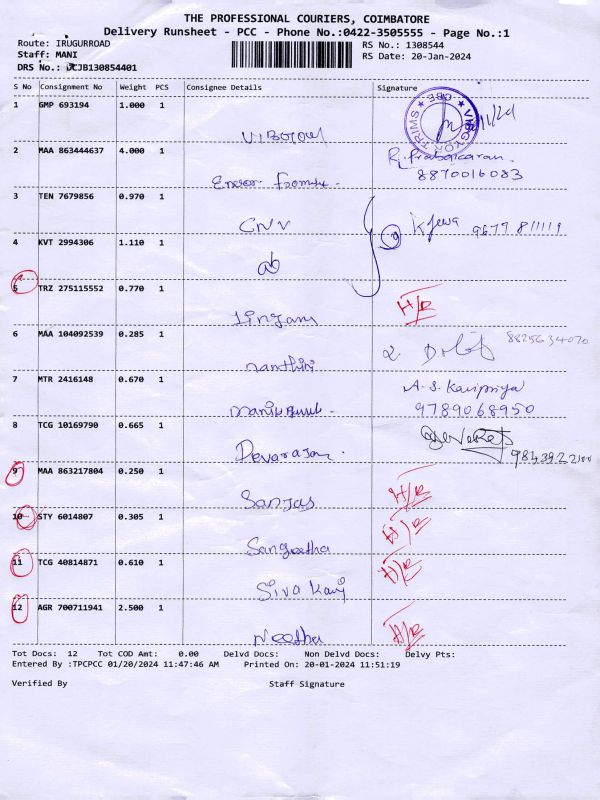 THE PROFESSIONAL COURIERS, COIMBATORE
Delivery Runsheet - PCC - Phone No.:0422-3505555 - Page No.:1
Route: IRUGURROAD RS No.: 1308544
Staff: MANI RS Date: 20-Jan-2024
DRS No.: JCJB130854401
S No Consignment No Weight PCS Consignee Details Signature
1 GMP 693194 1.000 1
VIBGYOR TRIMS CBE
2 MAA 863444637 4.000 1 R. Prabakaran
8870016083
3 TEN 7679856 0.970 1 CNV
4 KVT 2994306 1.110 1
5 TRZ 275115552 0.770 1 Lingam H/R
6 MAA 104092539 0.285 1 nanthini 8825634070
7 MTR 2416148 0.670 1 A.S. Kavipriya
9789068950
8 TCG 10169790 0.665 1 Devarajan
9 MAA 863217804 0.250 1 Sanjas H/R
10 STY 6014807 0.305 1 Sangeetha H/R
11 TCG 40814871 0.610 1 Siva Kavi H/R
12 AGR 700711941 2.500 1 Neetha H/R
Tot Docs: 12 Tot COD Amt: 0.00 Delvd Docs: Non Delvd Docs: Delvy Pts:
Entered By :TPCPCC 01/20/2024 11:47:46 AM Printed On: 20-01-2024 11:51:19
Verified By Staff Signature